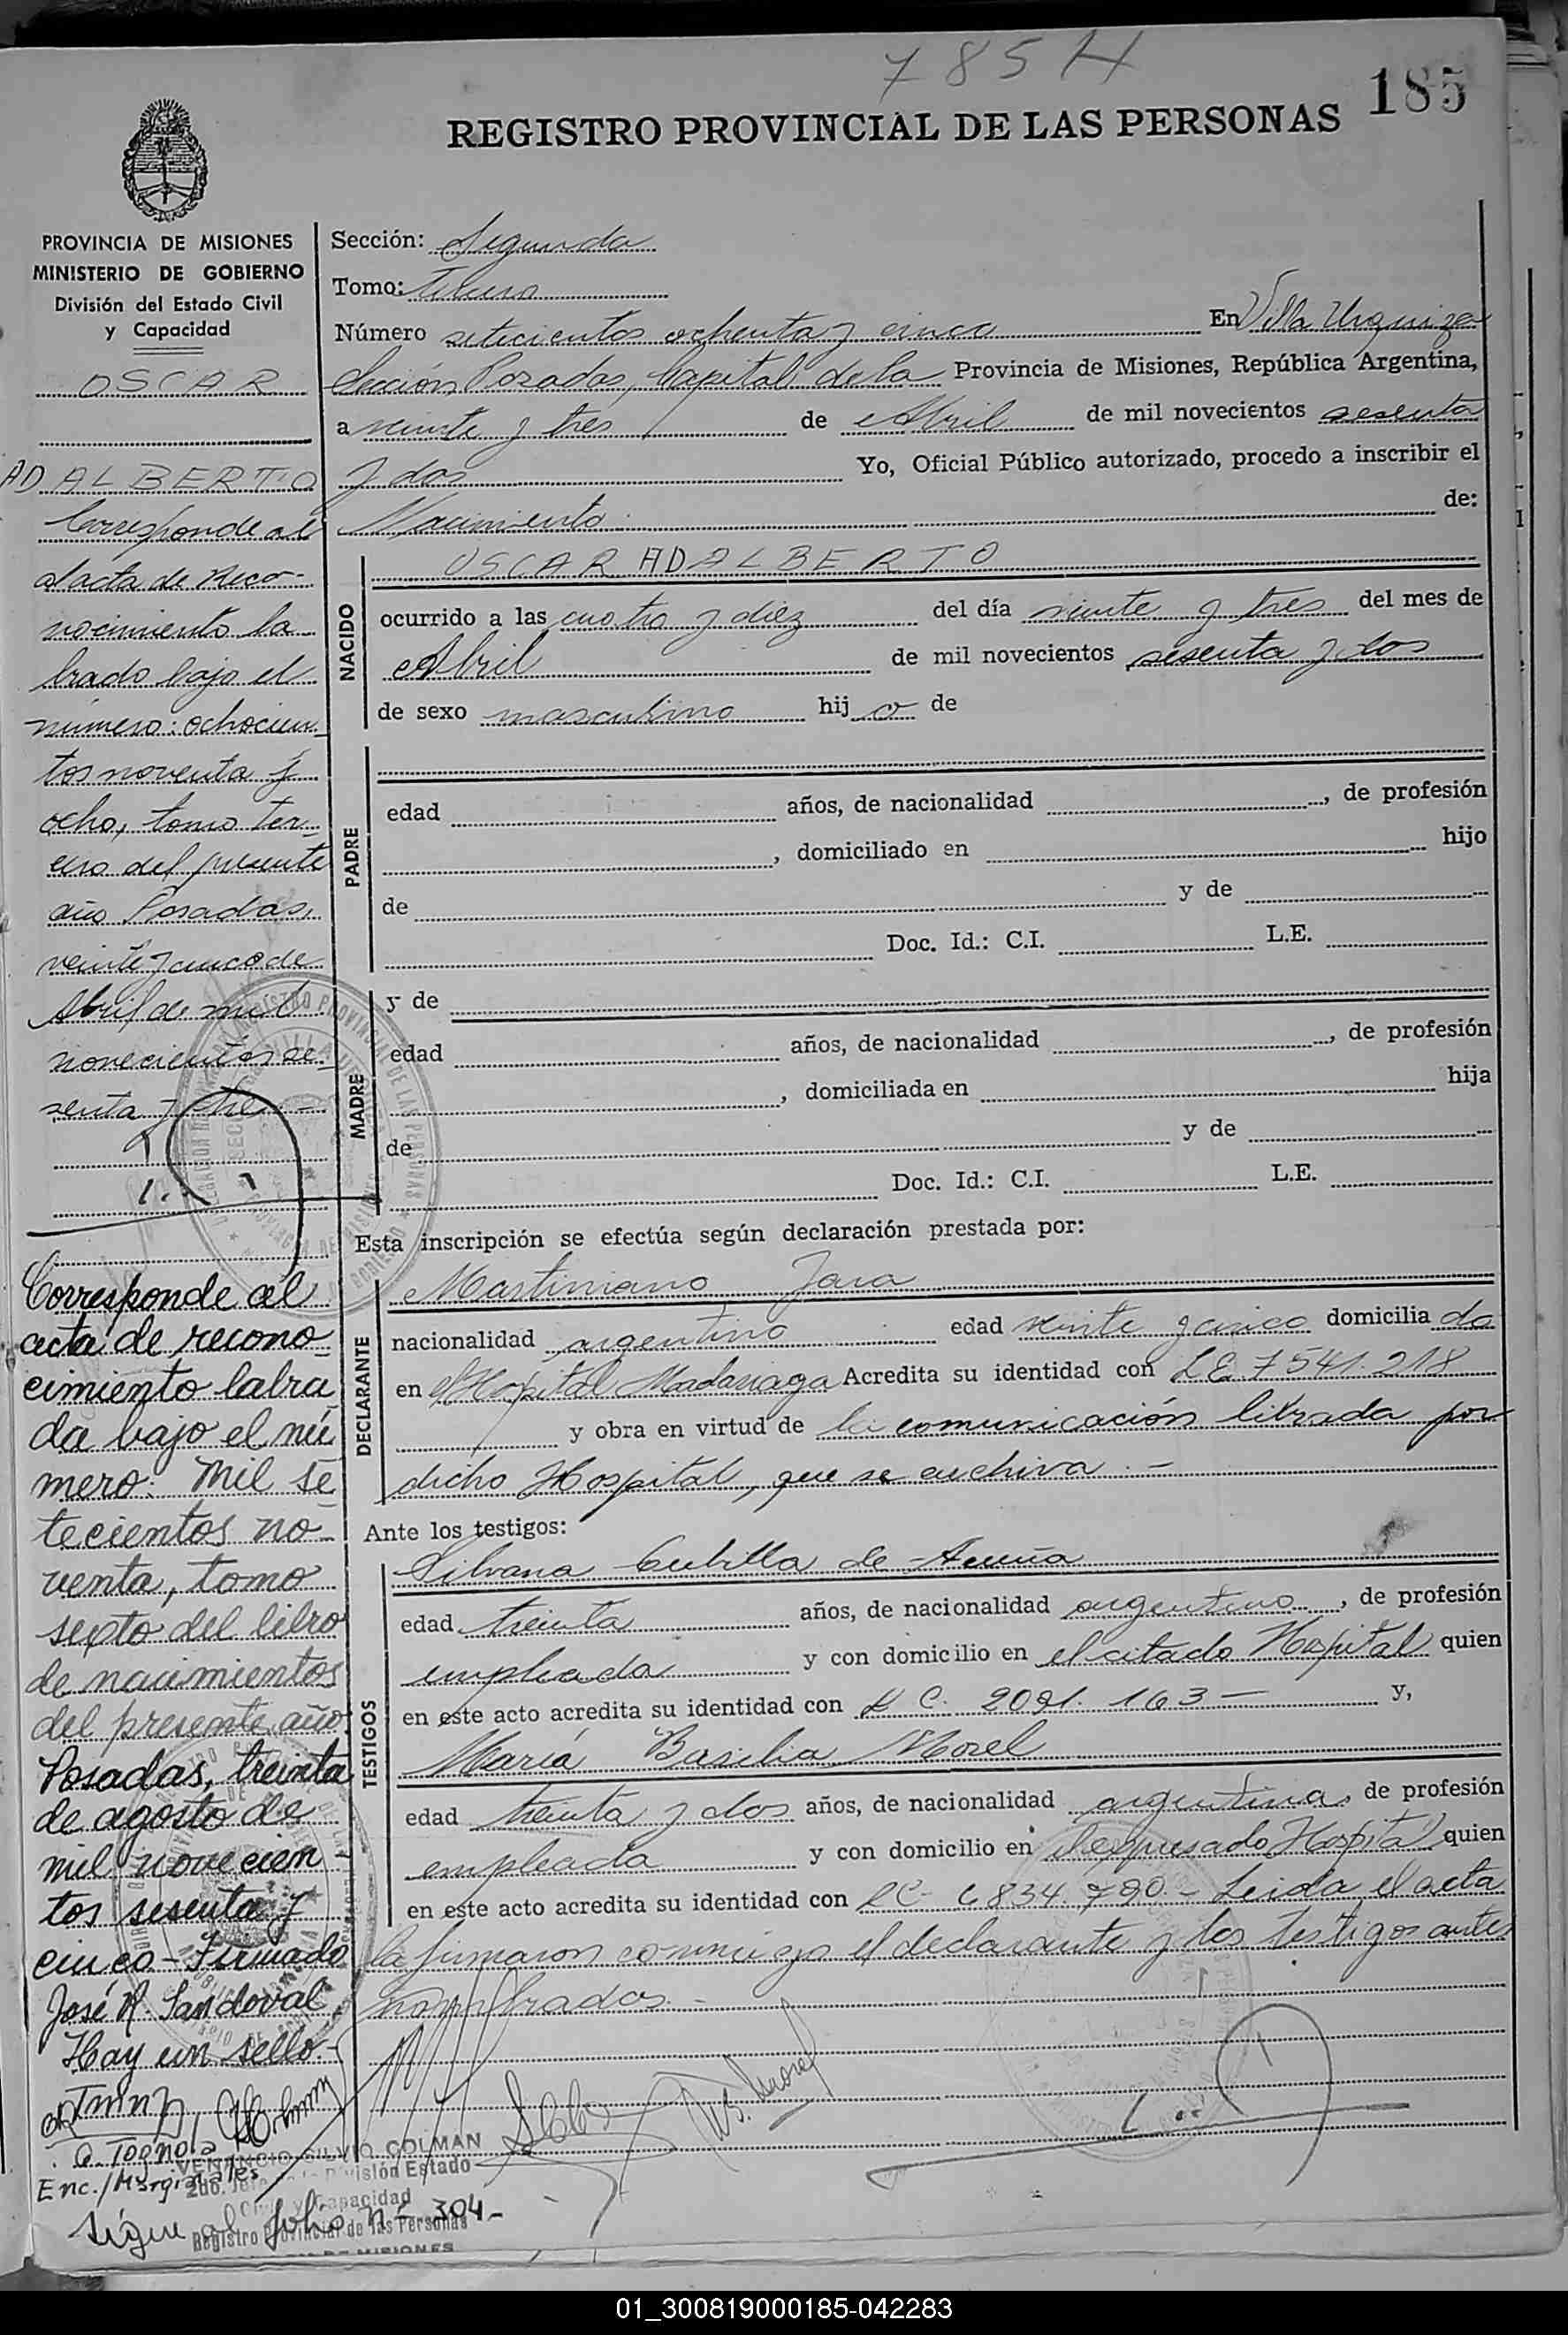 785 H
185
REGISTRO PROVINCIAL DE LAS PERSONAS
PROVINCIA DE MISIONES
MINISTERIO DE GOBIERNO
División del Estado Civil
y Capacidad
OSCAR
ADALBERTO
Corresponde al
al acta de Reco-
nocimiento la
brado bajo el
número: ochocien
tos noventa y
ocho, tomo ter-
cero del presente
año Posadas,
veinte y cinco de
Abril de mil
novecientos se-
senta y
Corresponde al
acta de recono
cimiento labra
da bajo el nú
mero: Mil se
tecientos no-
venta, tomo
sexto del libro
de nacimientos
del presente año.
Posadas, treinta
de agosto de
mil novecien
tos sesenta y
cinco - Firmado
José R. Sandoval
Hay un sello.-
Enc./Marginales
VENANCIO SILVIO COLMAN
2do. Jefe División Estado
Civil y Capacidad
Registro Provincial de las Personas
DE MISIONES
Sigue al folio Nº 304-
Sección: Segunda
Tomo: tercero
Número setecientos ochenta y cinco En Villa Urquiza
Sección Posadas, Capital de la Provincia de Misiones, República Argentina,
a veinte y tres de Abril de mil novecientos sesenta
y dos Yo, Oficial Público autorizado, procedo a inscribir el
Nacimiento de:
NACIDO
OSCAR ADALBERTO
ocurrido a las cuatro y diez del día veinte y tres del mes de
Abril de mil novecientos sesenta y dos
de sexo masculino hij o de
PADRE
edad años, de nacionalidad , de profesión
, domiciliado en hijo
de y de
Doc. Id.: C.I. L.E.
MADRE
y de
edad años, de nacionalidad , de profesión
, domiciliada en hija
de y de
Doc. Id.: C.I. L.E.
Esta inscripción se efectúa según declaración prestada por:
DECLARANTE
Martiniano Jara
nacionalidad argentino edad veinte y cinco domicilia do
en el Hospital Madariaga Acredita su identidad con L.E. 7541.218
y obra en virtud de la comunicación librada por
dicho Hospital, que se archiva.-
Ante los testigos:
TESTIGOS
Silvana Cubilla de Acuña
edad treinta años, de nacionalidad argentina , de profesión
empleada y con domicilio en el citado Hospital quien
en este acto acredita su identidad con L C. 2091.163- y,
María Basilia Morel
edad treinta y dos años, de nacionalidad argentina, de profesión
empleada y con domicilio en el expresado Hospital quien
en este acto acredita su identidad con LC- 6834.790.- Leida el acta
la firmaron conmigo el declarante y los testigos antes
nombrados.-
01_300819000185-042283